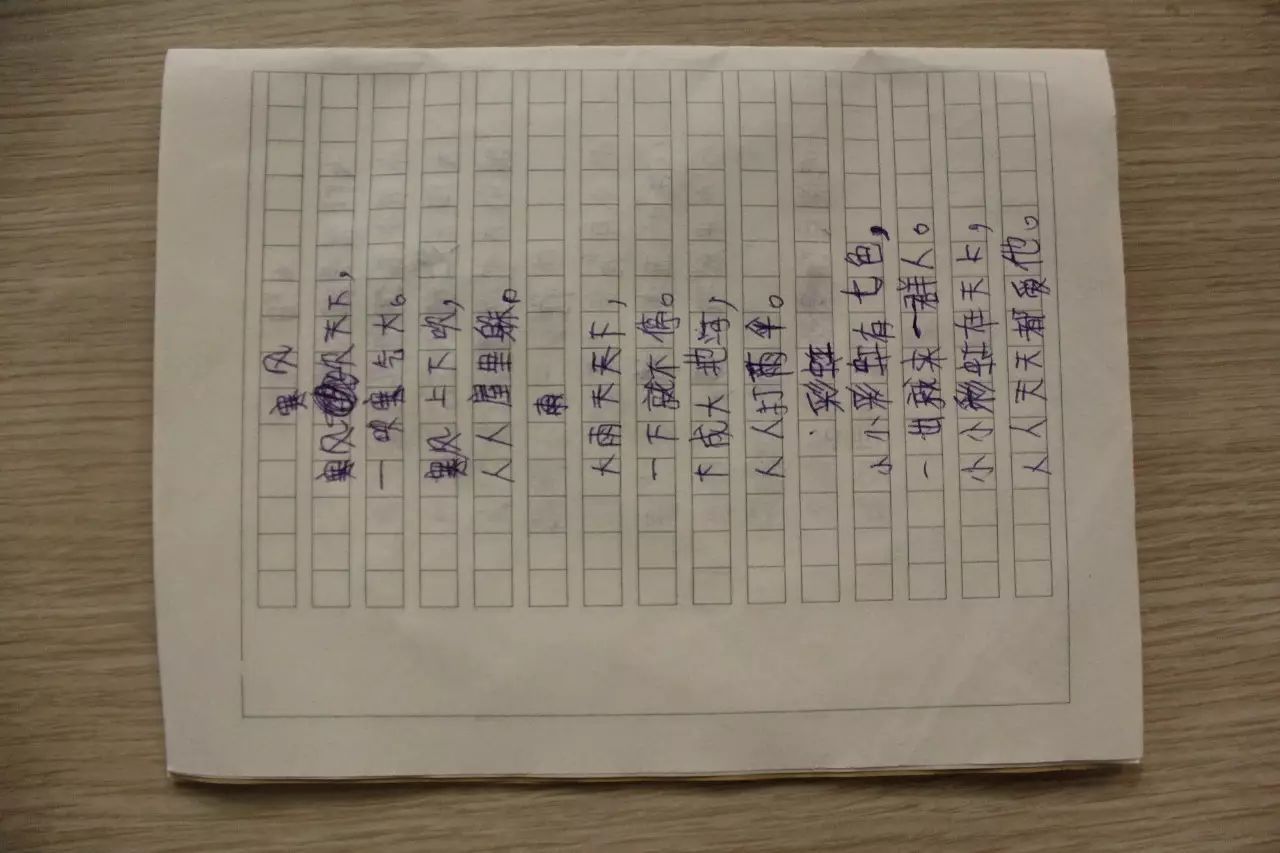 寒风
寒风吹天下，
一吹寒气大。
寒风上下吹，
人人屋里躲。
雨
大雨天天下，
一下就不停。
下成大地河，
人人打雨伞。
彩虹
小小彩虹有七色，
一出就来一群人。
小小彩虹在天上，
人人天天都爱他。